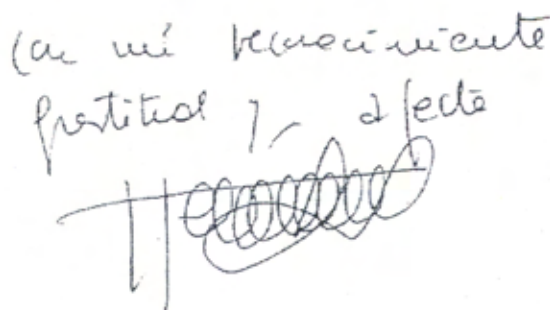 Con mi reconocimiento
gratitud y afecto